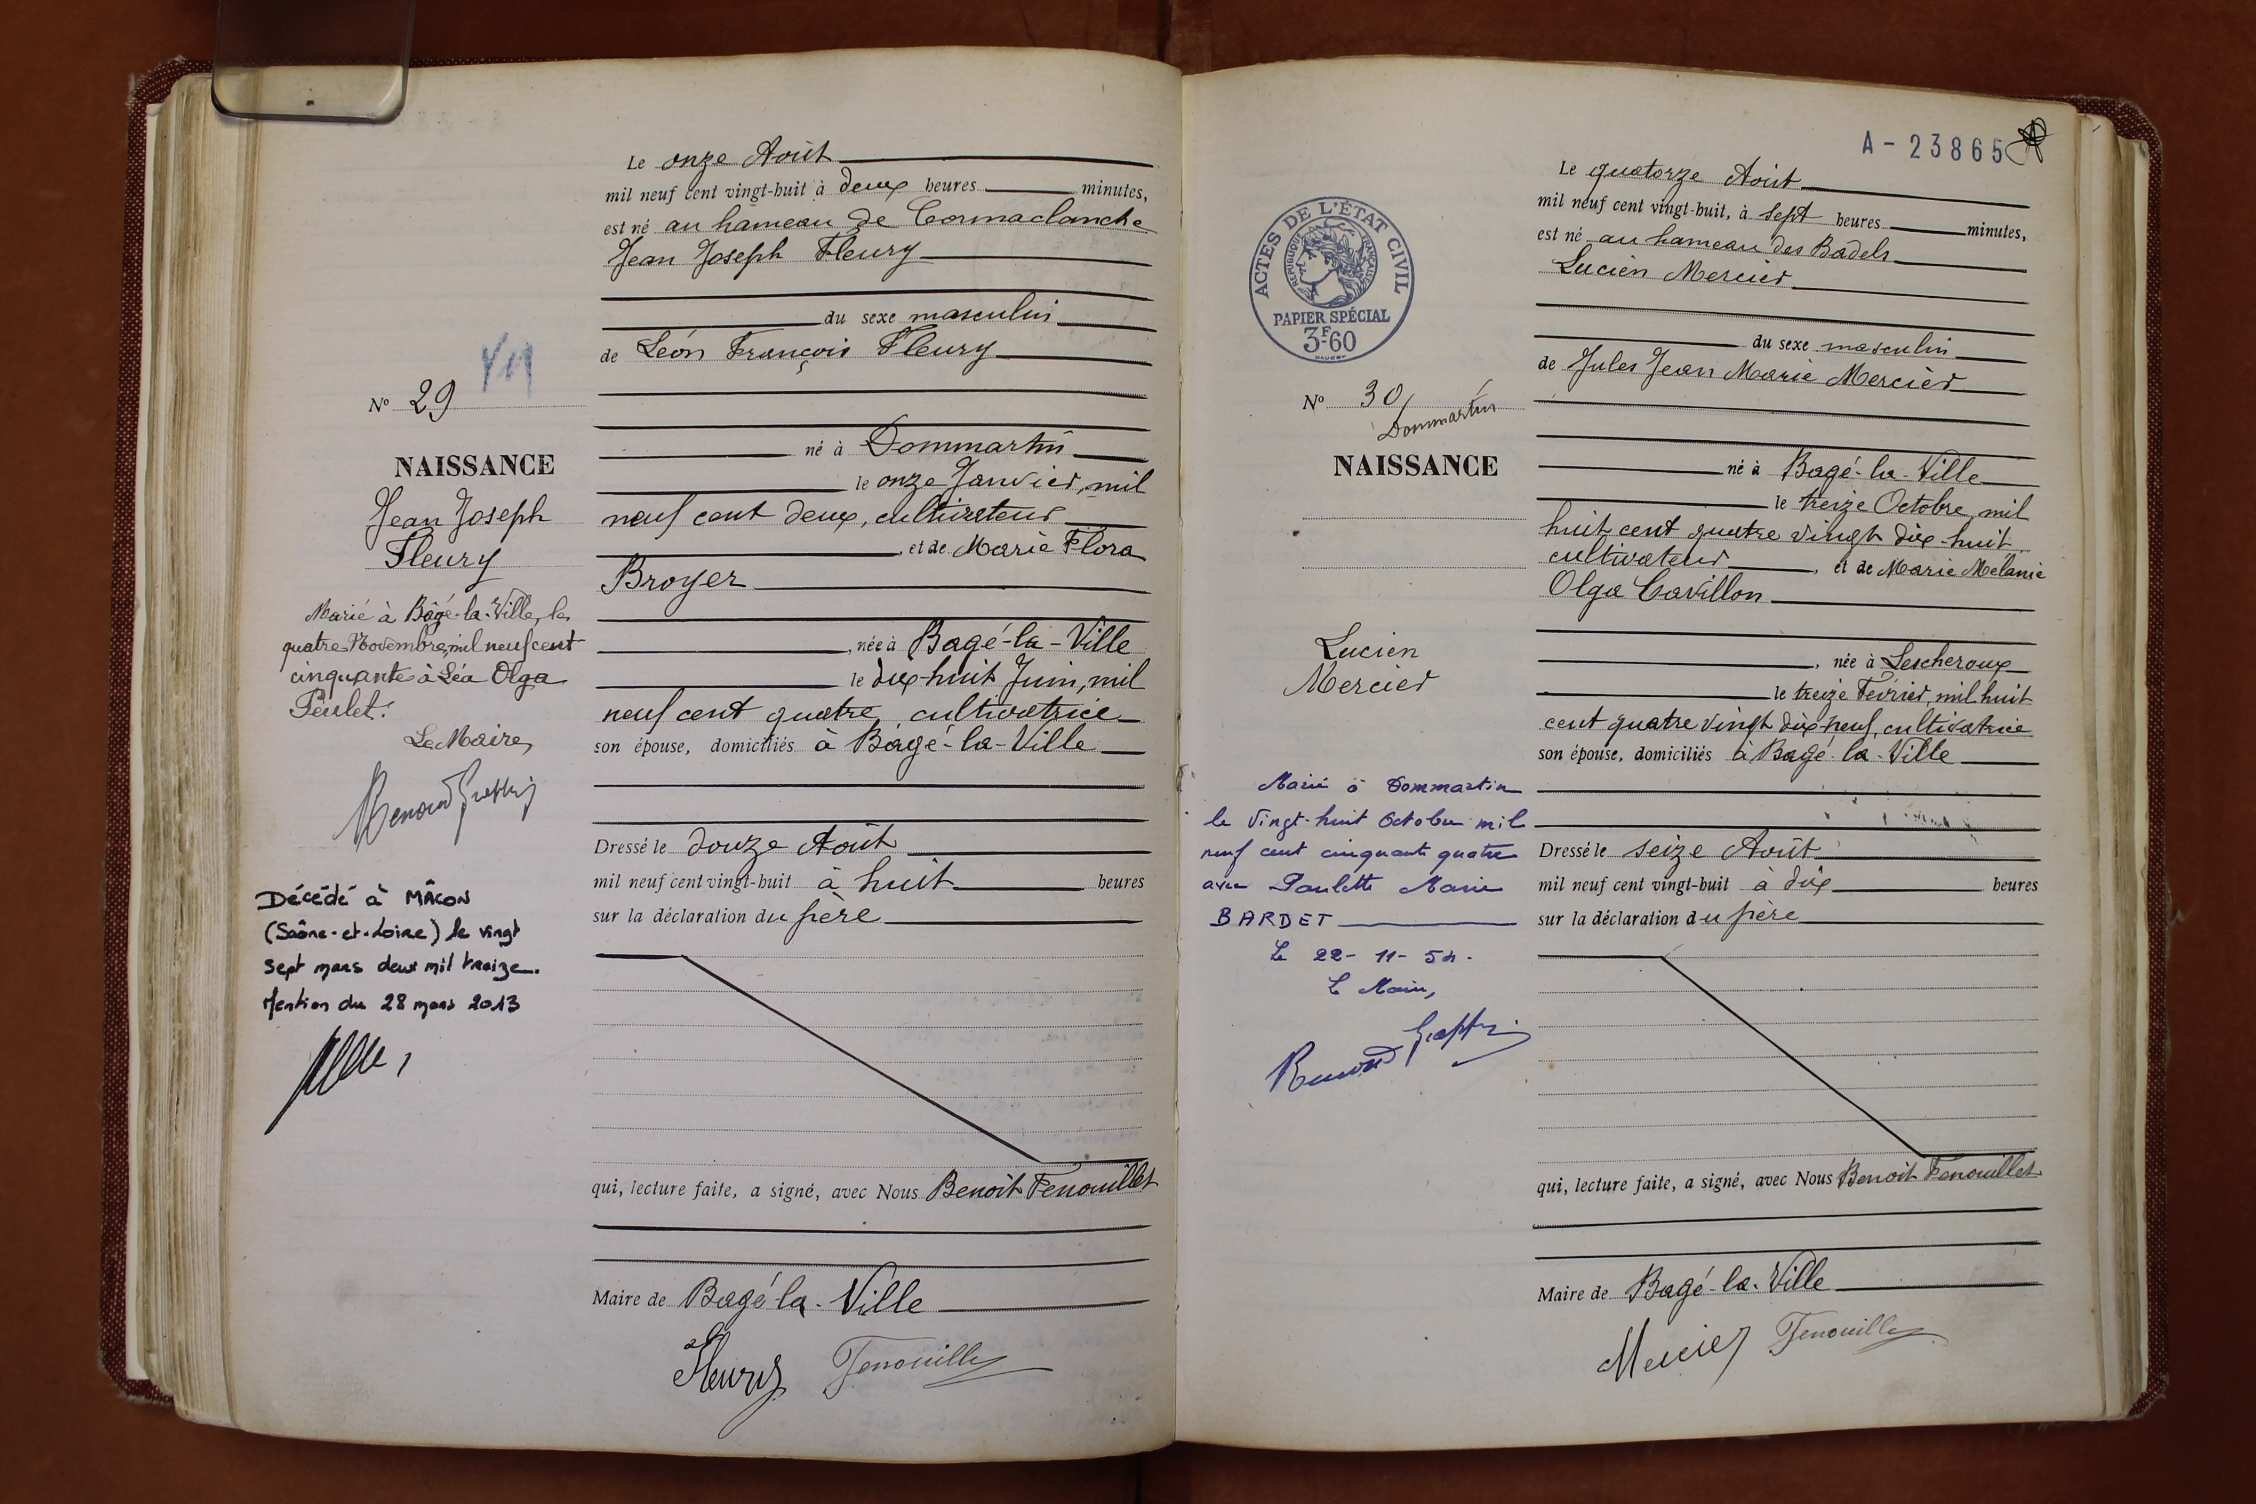 N° 29
NAISSANCE
Jean Joseph
Fleury
Marié à Bâgé-la-Ville, le
quatre Novembre, mil neuf cent
cinquante à Léa Olga
Le Maire,
Décédé à MÂCON
(Saône-et-Loire) le vingt
sept mars deux mil treize.
Mention du 28 mars 2013
Le onze Août
mil neuf cent vingt-huit à deux heures minutes,
est né au hameau de Cormaclanche
Jean Joseph Fleury
du sexe masculin
de Léon François Fleury
né à Dommartin
le onze Janvier, mil
neuf cent deux, cultivateur
, et de Marie Flora
Broyer
, née à Bagé-la-Ville
le dix-huit Juin, mil
neuf cent quatre, cultivatrice
son épouse, domiciliés à Bagé-la-Ville
Dressé le douze Août
mil neuf cent vingt-huit à huit heures
sur la déclaration du père
qui, lecture faite, a signé, avec Nous Benoit Fenouillet
Maire de Bagé-la-Ville
Fleury Fenouillet
A-23865
ACTES DE L'ÉTAT CIVIL
RÉPUBLIQUE FRANÇAISE
PAPIER SPÉCIAL
3F60
N° 30
Dommartin
NAISSANCE
Lucien
Mercier
Marié à Dommartin
le vingt-huit Octobre mil
neuf cent cinquante quatre
avec Paulette Marie
BARDET
Le 22-11-54.
Le Maire,
Le quatorze Août
mil neuf cent vingt-huit, à sept heures minutes,
est né au hameau des Badels
Lucien Mercier
du sexe masculin
de Jules Jean Marie Mercier
né à Bagé-la-Ville
le treize Octobre, mil
huit cent quatre vingt dix-huit
cultivateur , et de Marie Mélanie
Olga Cavillon
, née à Lescheroux
le treize Février, mil huit
cent quatre vingt dix-neuf, cultivatrice
son épouse, domiciliés à Bagé-la-Ville
Dressé le seize Août
mil neuf cent vingt-huit à dix heures
sur la déclaration du père
qui, lecture faite, a signé, avec Nous Benoit Fenouillet
Maire de Bagé-la-Ville
Mercier Fenouillet